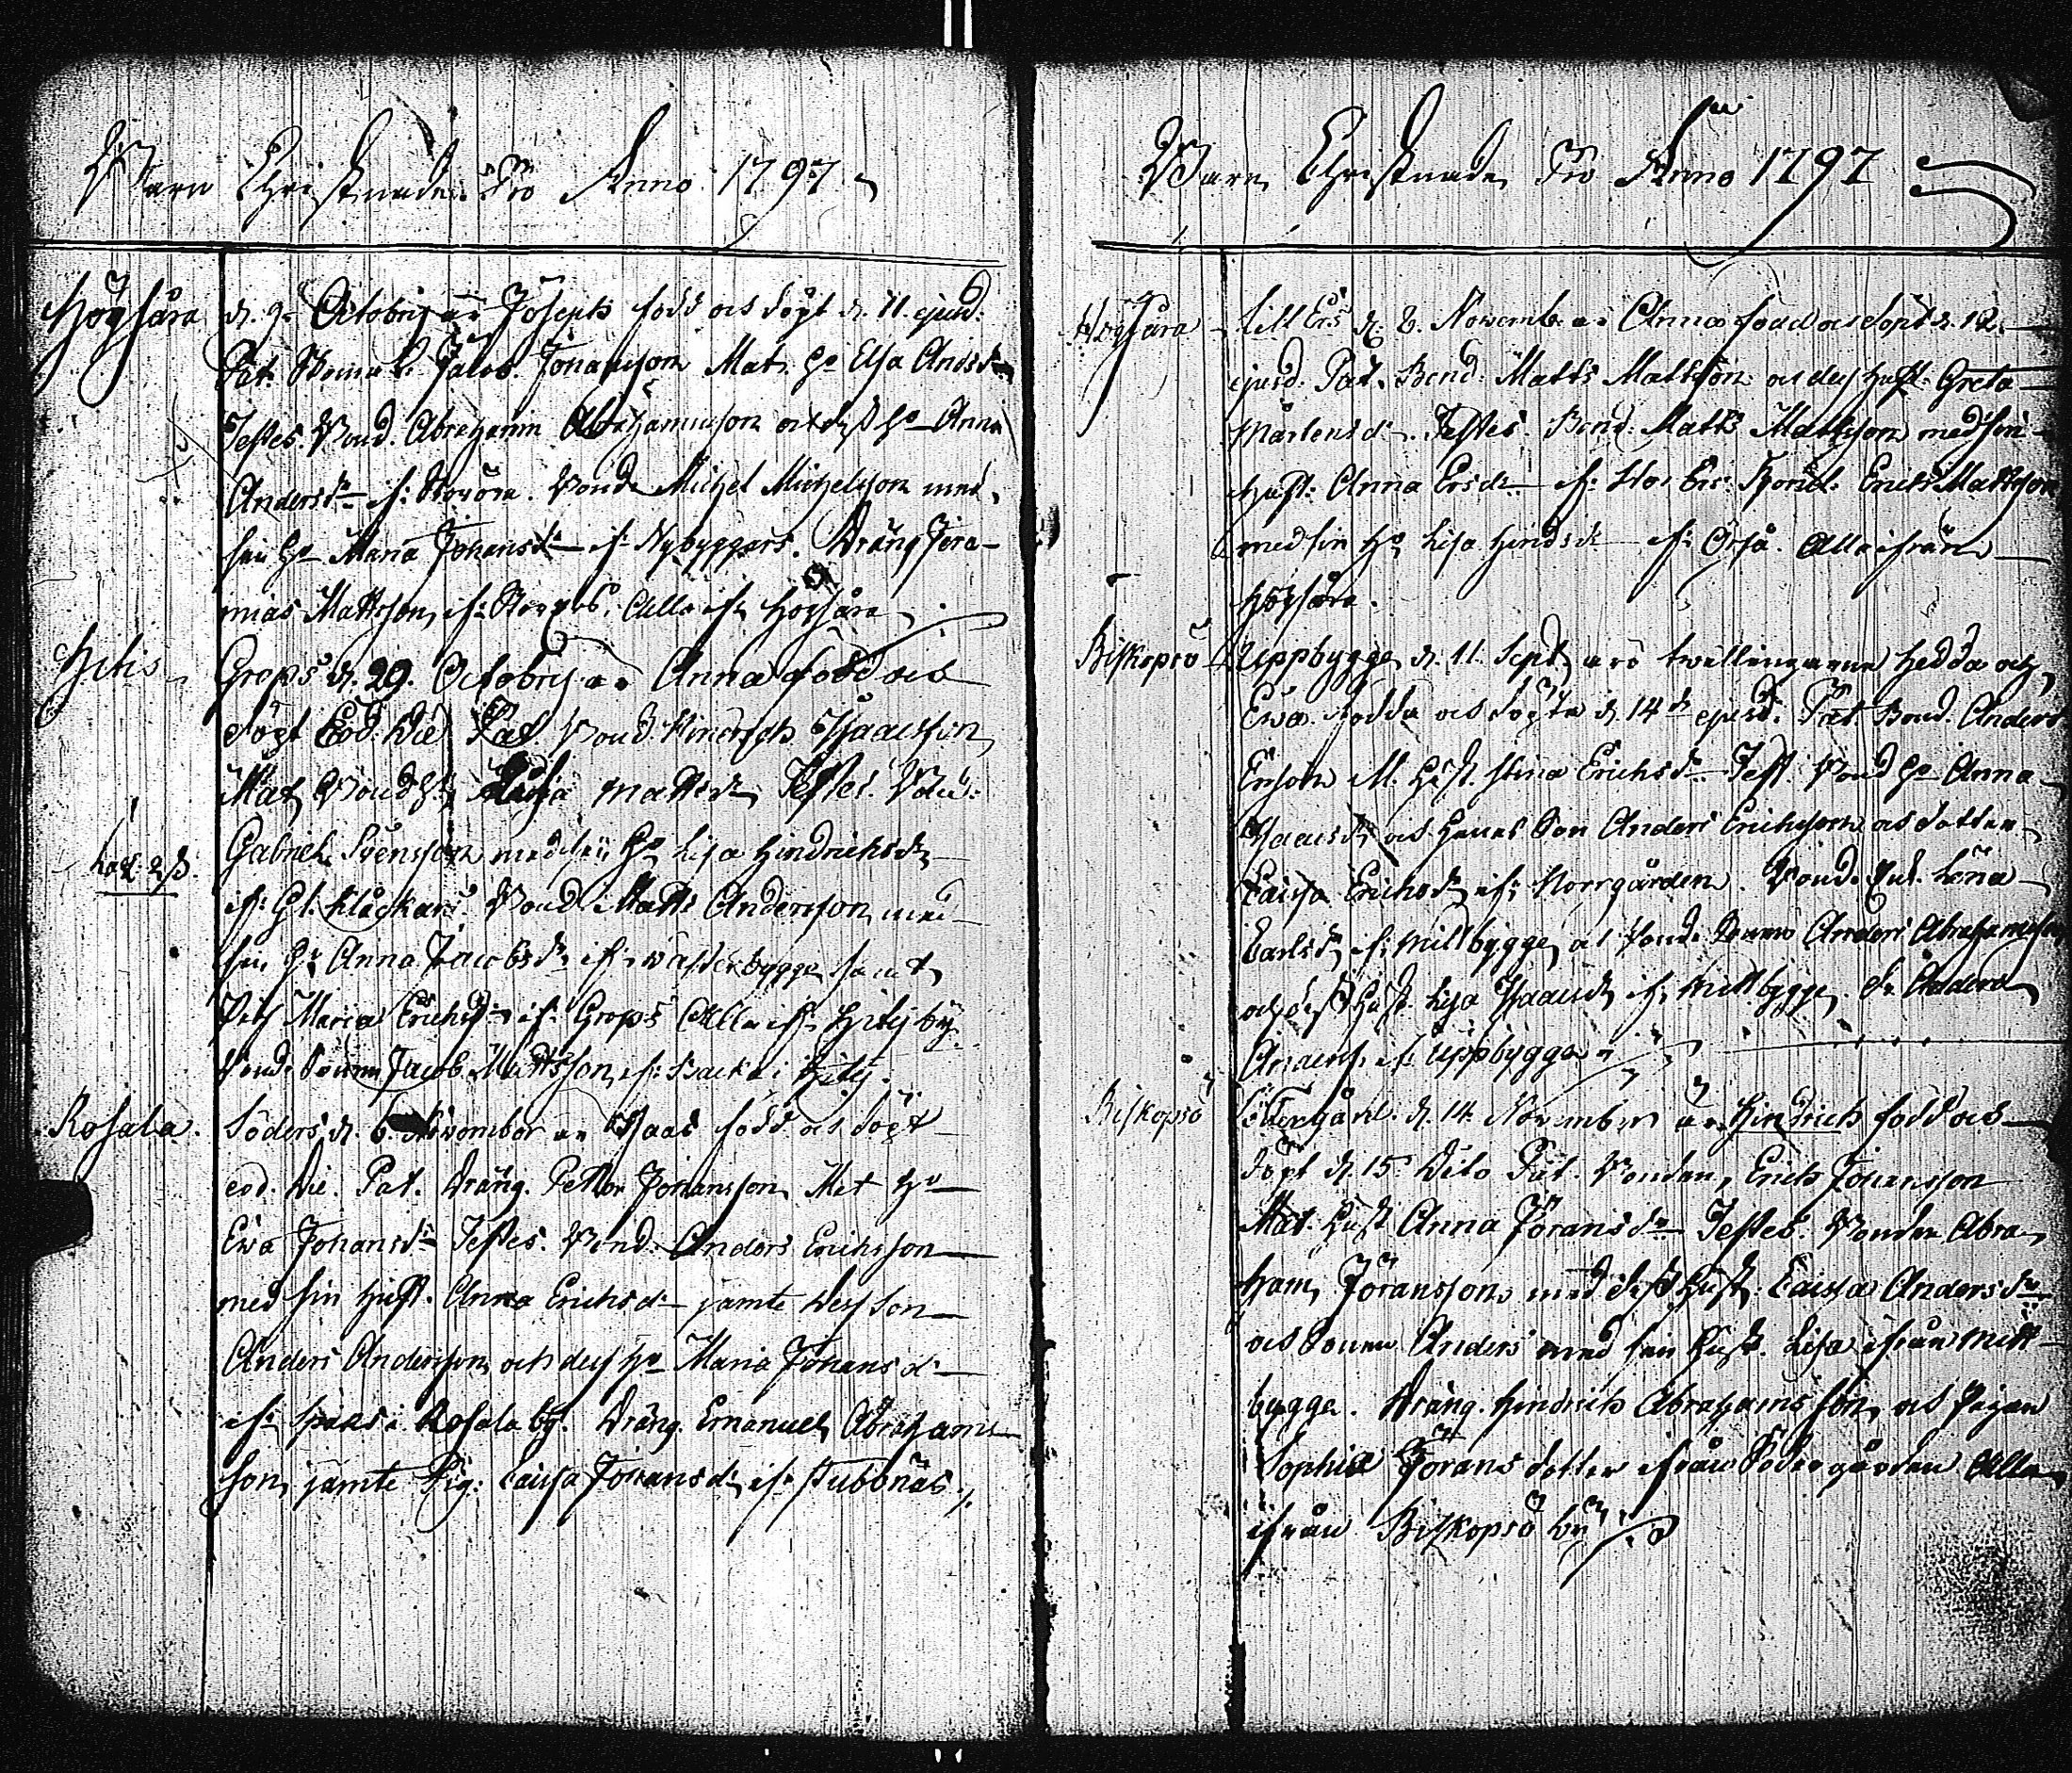 Barn Christnade Pro Anno 1797
Högsåra d. 9. Octobris är Joseph född och döpt d. 11. ejusd.
Pat. Jacob Johansson Mat. H:o Elsa Andsdr
Testes. Bond. Abraham Abrahamsson och dess H:o Anna
Andersdr if: Bond. Michel Michelsson med
sin H:o Maria Johansdr if: Nybyggars. Dräng Jere-
mias Mattsson, if: Alla if: Högsåra
Hitis Grops d. 29. Octobris är Anna född och
döpt Eod. Die Pat Bond Hindrich Isaacsson
Mat, Bond H:o Mattsdr Testes. Bond.
Gabriel Svensson med sin H:o Lisa Hindrichsdr
if: Gl. Klåckars. Bond Matts Andersson med
sin H:o Anna Jacobsdr if: Wästerbygge samt
Pig Maria Erichsdr if: Grops Alla if: Hitis by.
Bond. Sonen Jacob Mattsson, if: Backa i Hitis.
Rosala. Söders d. 6. November är Isaac född och döpt
eod. Die. Pat. Dräng. Petter Johansson Mat H:o
Ewa Johansdr Testes. Bond. Anders Erichsson
med sin Hust. Anna Erichsdr jamte dess Son
Anders Andersson, och dess H:o Maria Johansdr
if: i Rosala by. Dräng. Emanuel Abrahams
son, jamte Pig: Caisa Johansdr, if: Stubbnäs
Barn Christnade Pro Anno 1797
Högsåra Lill Ers d. 8. Novemb. är Anna född och döpt d. 12.
ejusd. Pat. Bond. Matts Mattsson och dess Hust. Greta
Mårtensdr. Testes. Bond. Matts Mattsson med sin
Hust: Anna Ersdr if: Stor Ers. Erich Mattsson
med sin H:o Lisa Hindsdr if: Örså. Alla ifrån
Högsåra.
Biskopsö Uppbygge d. 11. Sept. äro twillingarna Hedda och
Ewa. födda och döpta d. 14de ejusd. Pat Bond. Anders
Ersson M. Hust. Stina Erichsdr Test. Bond H:o Anna
Isaacsdr och Hennes Son Anders Erichsson och dotter
Caisa Erichsdr if: Norrgården. Bond. Lena
Carlsdr if: Mittbygge, och Bond. Sonen Anders Abrahamsson
och dess Hust. Lisa Isaacsdr if: Mittbygge. Dr
Anders if: Uppbygge
Biskopsö Södergård. d. 14. November är Hindrich född och
döpt d. 15. Dito Pat. Bonden, Erich Johansson
Mat. Hust Anna Jöransdr Testes. Bonden Abra-
ham, Jöransson, med dess Hust. Caisa Andersdr
och Sonen Anders med sin Hust. Lisa ifrån Mitt-
bygge. Dräng. Hindrich Abrahamsson och Pigan
Sophia Jörans dotter ifrån Södergården Alla
ifrån Biskopsö by